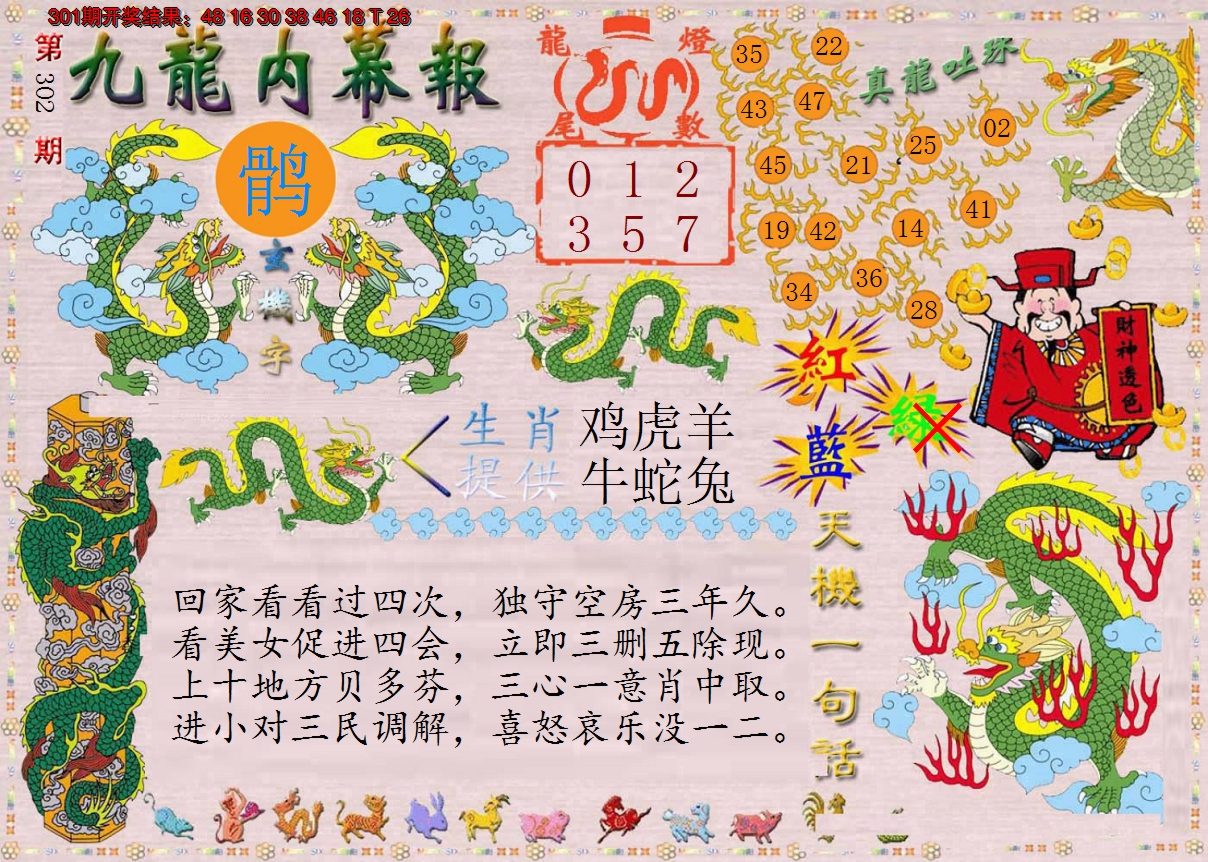 301期开奖结果：48 16 30 38 46 18 T 26
第
302
期
九龍内幕報
鹘
玄
機
字
龍
燈
尾
數
0 1 2
3 5 7
真龍吐珠
35
22
43
47
02
25
45
21
41
19
42
14
36
34
28
財神透色
紅
綠
藍
生肖
提供
鸡虎羊
牛蛇兔
天機一句話
回家看看过四次，独守空房三年久。
看美女促进四会，立即三删五除现。
上十地方贝多芬，三心一意肖中取。
进小对三民调解，喜怒哀乐没一二。